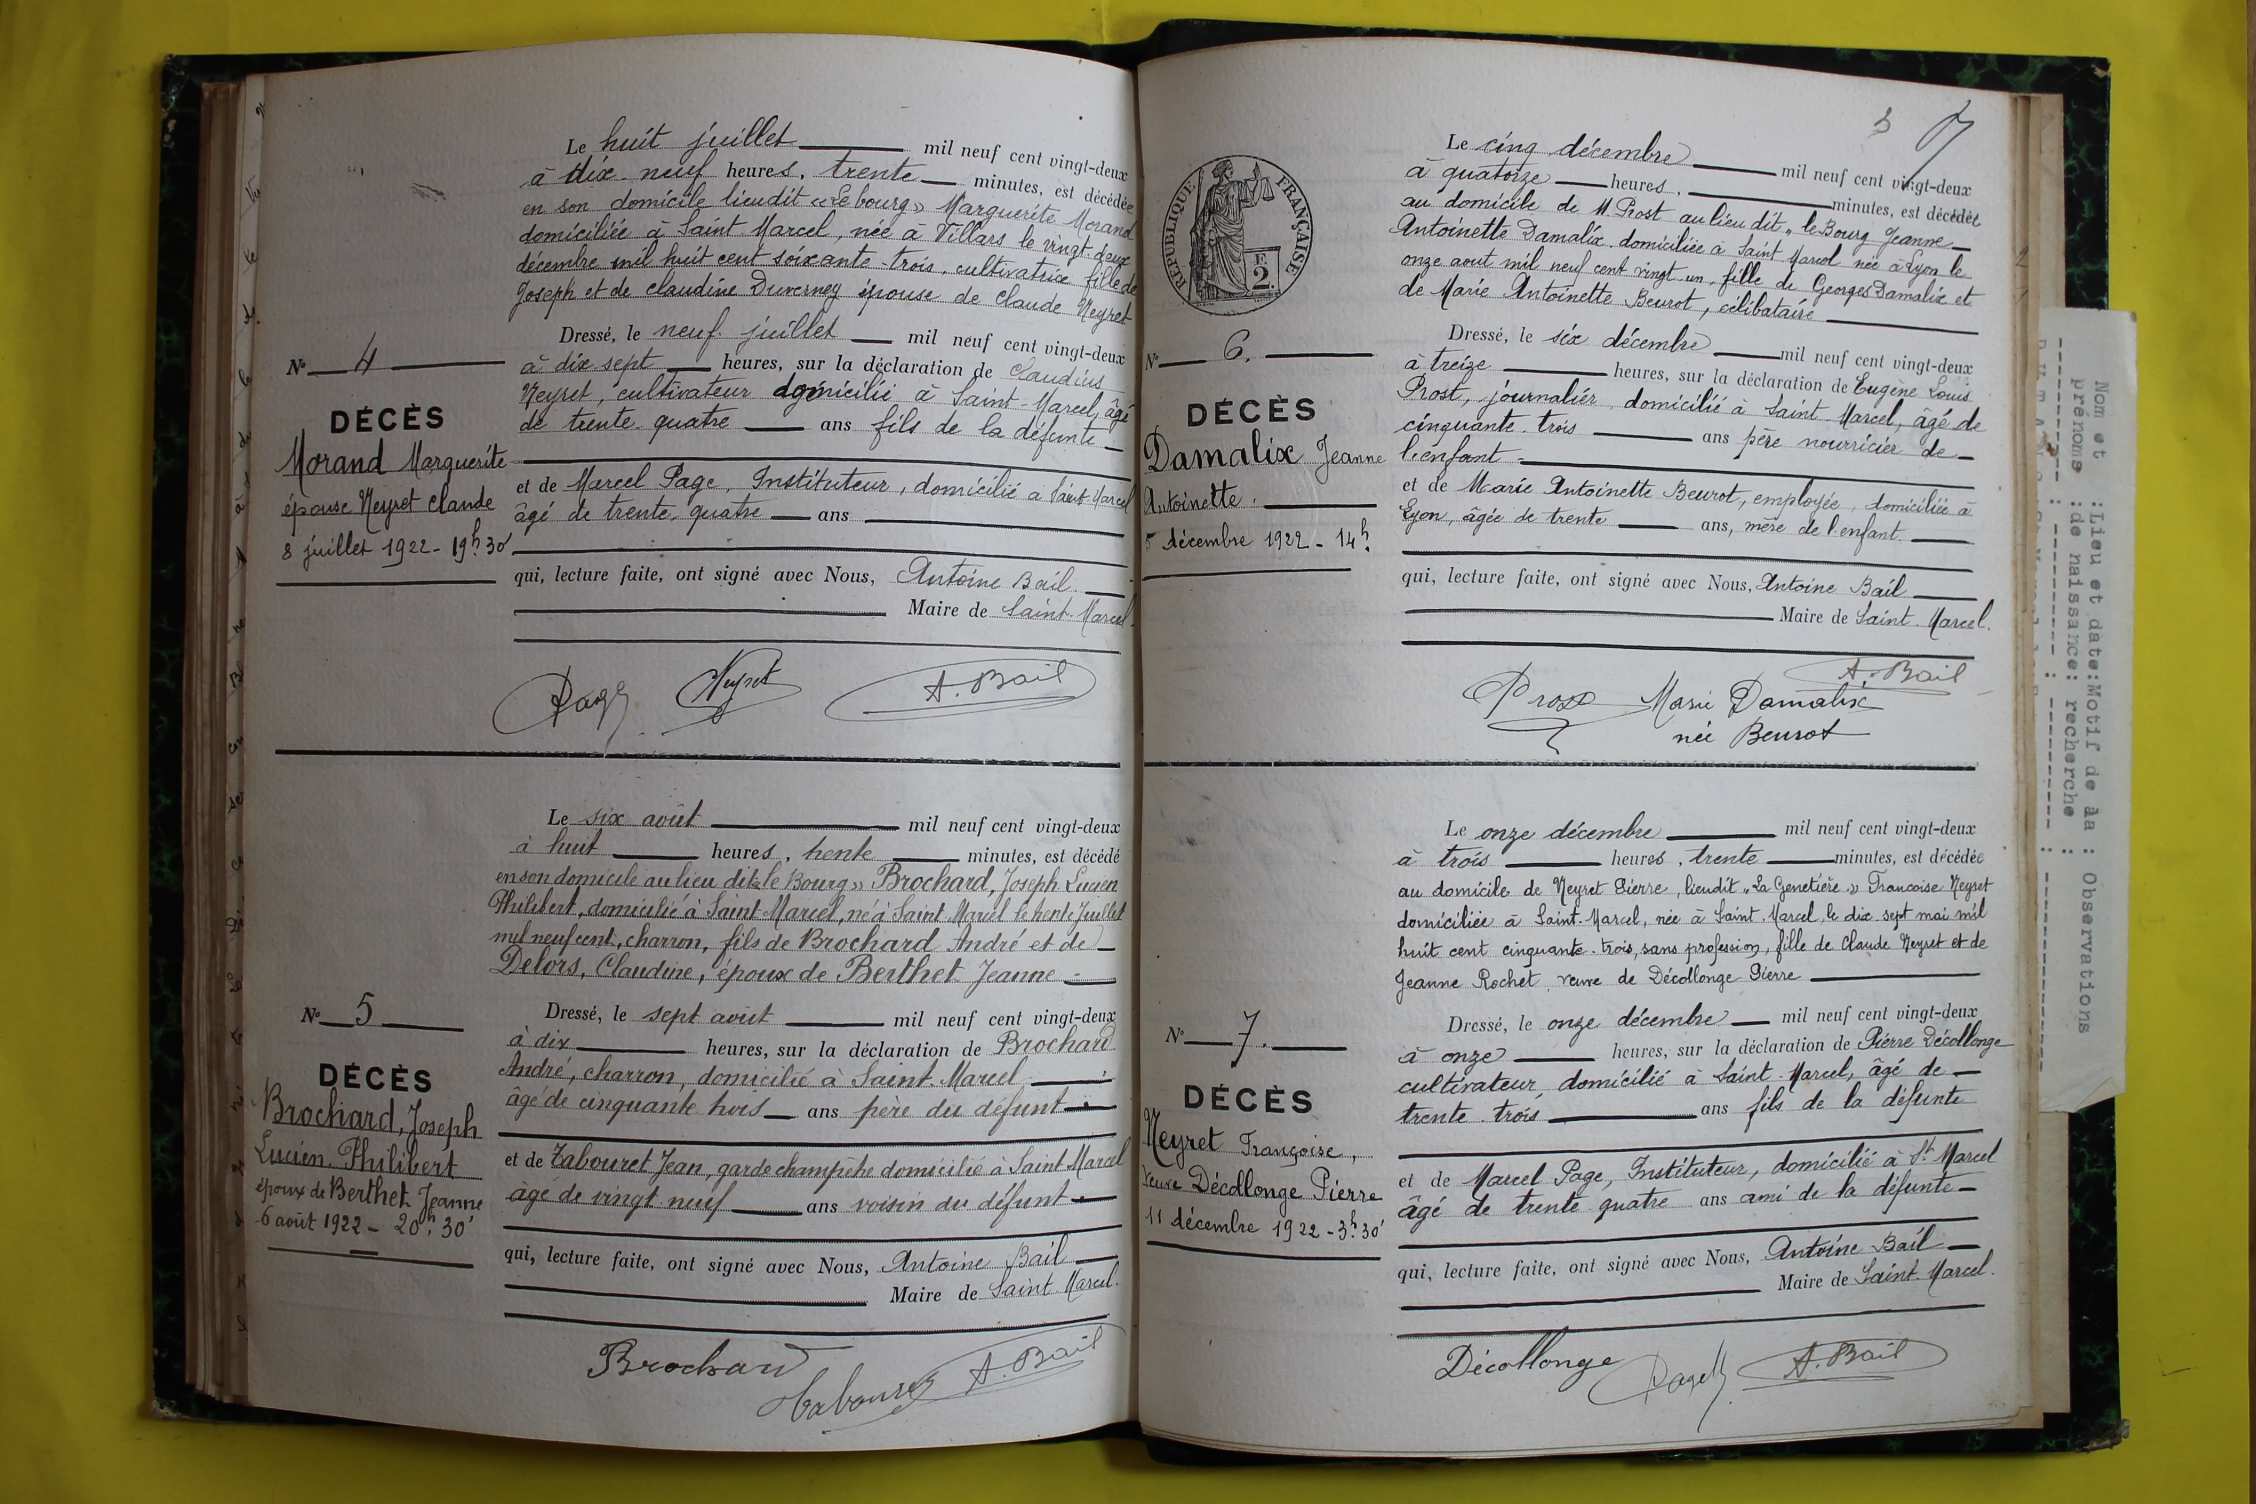 Le huit juillet mil neuf cent vingt-deux
à dix-neuf heures, trente minutes, est décédée
en son domicile lieudit «Le bourg» Marguerite Morand
domiciliée à Saint-Marcel, née à Villars le vingt-deux
décembre mil huit cent soixante-trois, cultivatrice fille de
Joseph et de Claudine Duverney épouse de Claude Neyret
Dressé, le neuf juillet mil neuf cent vingt-deux
à dix sept heures, sur la déclaration de Claudius
Neyret, cultivateur domicilié à Saint-Marcel, âgé
de trente-quatre ans fils de la défunte
et de Marcel Page, Instituteur, domicilié à Saint-Marcel
âgé de trente-quatre ans
qui, lecture faite, ont signé avec Nous, Antoine Bail
Maire de Saint-Marcel.
Page Neyret A. Bail
N° 4
DÉCÈS
Morand Marguerite
épouse Neyret Claude
8 juillet 1922 - 19h30'
Le six août mil neuf cent vingt-deux
à huit heures, trente minutes, est décédé
en son domicile au lieu dit «le Bourg» Brochard, Joseph Lucien
Philibert, domicilié à Saint-Marcel, né à Saint Marcel le trente Juillet
mil neuf cent, charron, fils de Brochard André et de
Delors, Claudine, époux de Berthet Jeanne
Dressé, le sept août mil neuf cent vingt-deux
à dix heures, sur la déclaration de Brochard
André, charron, domicilié à Saint-Marcel,
âgé de cinquante trois ans père du défunt
et de Tabouret Jean, garde champêtre domicilié à Saint Marcel
âgé de vingt neuf ans voisin du défunt
qui, lecture faite, ont signé avec Nous, Antoine Bail
Maire de Saint-Marcel.
Brochard Tabouret A. Bail
N° 5
DÉCÈS
Brochard, Joseph
Lucien Philibert
époux de Berthet Jeanne
6 août 1922 - 20h30'
3 7
RÉPUBLIQUE FRANÇAISE
F.
2.
Le cinq décembre mil neuf cent vingt-deux
à quatorze heures, minutes, est décédée
au domicile de M Prost au lieu dit "le Bourg Jeanne
Antoinette Damalix domiciliée à Saint Marcel née à Lyon le
onze aout mil neuf cent vingt-un, fille de Georges Damalix et
de Marie Antoinette Beurot, célibataire
Dressé, le six décembre mil neuf cent vingt-deux
à treize heures, sur la déclaration de Eugène Louis
Prost, journalier, domicilié à Saint-Marcel, âgé de
cinquante-trois ans père nourricier de
l'enfant
et de Marie Antoinette Beurot, employée, domiciliée à
Lyon, âgée de trente ans, mère de l'enfant.
qui, lecture faite, ont signé avec Nous, Antoine Bail
Maire de Saint-Marcel.
A. Bail
Prost Marie Damalix
née Beurot
N° 6.
DÉCÈS
Damalix Jeanne
Antoinette.
5 décembre 1922 - 14h.
Le onze décembre mil neuf cent vingt-deux
à trois heures, trente minutes, est décédée
au domicile de Neyret Pierre, lieudit "La Genetière" Francoise Neyret
domiciliée à Saint-Marcel, née à Saint-Marcel, le dix-sept mai mil
huit cent cinquante-trois, sans profession, fille de Claude Neyret et de
Jeanne Rochet, veuve de Décollonge Pierre
Dressé, le onze décembre mil neuf cent vingt-deux
à onze heures, sur la déclaration de Pierre Décollonge
cultivateur, domicilié à Saint-Marcel, âgé de
trente-trois ans fils de la défunte
et de Marcel Page, Instituteur, domicilié à St Marcel
âgé de trente quatre ans ami de la défunte
qui, lecture faite, ont signé avec Nous, Antoine Bail
Maire de Saint-Marcel.
Décollonge Page A. Bail
N° 7.
DÉCÈS
Neyret Françoise,
veuve Décollonge Pierre
11 décembre 1922 - 3h30'
Nom et :Lieu et date:Motif de la : Observations
prénoms :de naissance: recherche :